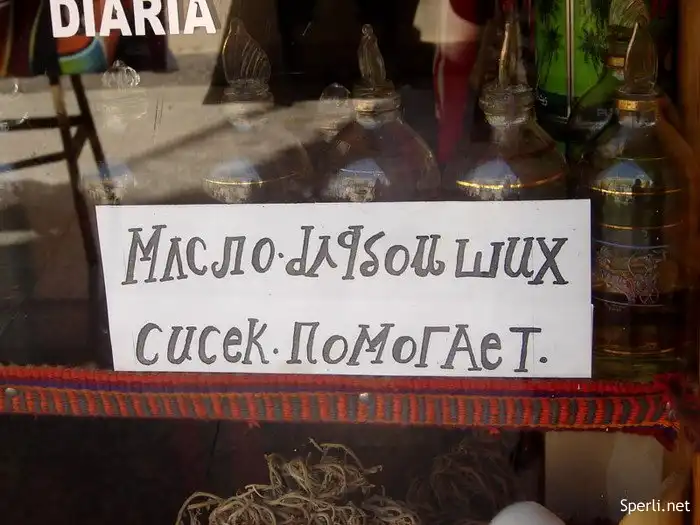 DIARIA
Масло·для больших
сисек·помогает.
Sperli.net